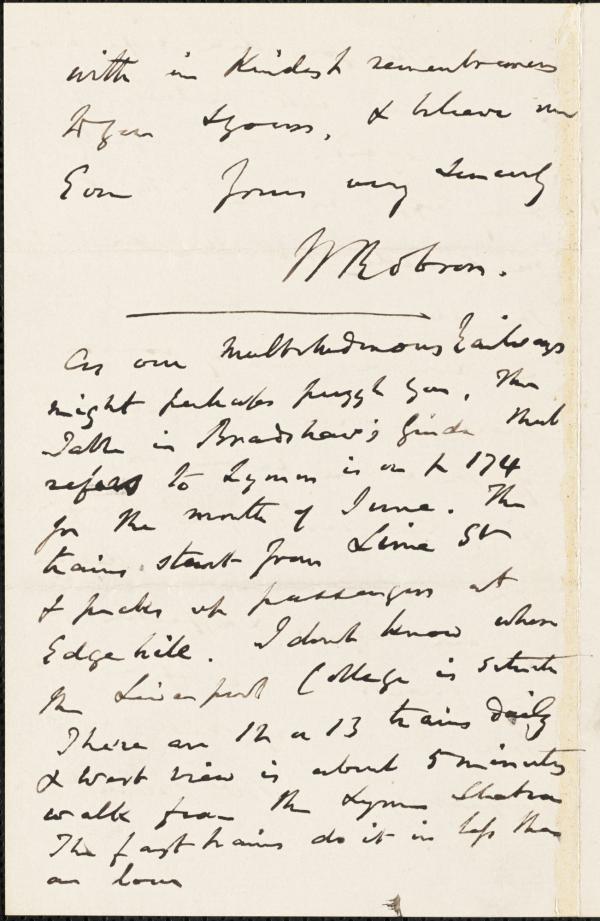 with in Kindest remembrances
to you & yours, & believe me
Ever Yours very Sincerely
W Robson.
As our Multitudinous Railways
might perhaps puzzle you, The
Table in Bradshaw's Guide that
refers to Lymm is on p 174
for the month of June. The
trains start from Lime St
& picks up passengers at
Edge hill. I don't know where
the Liverpool College is situate
There are 12 or 13 trains daily
& West view is about 5 minutes
walk from the Lymm Station
The fast trains do it in less than
an hour